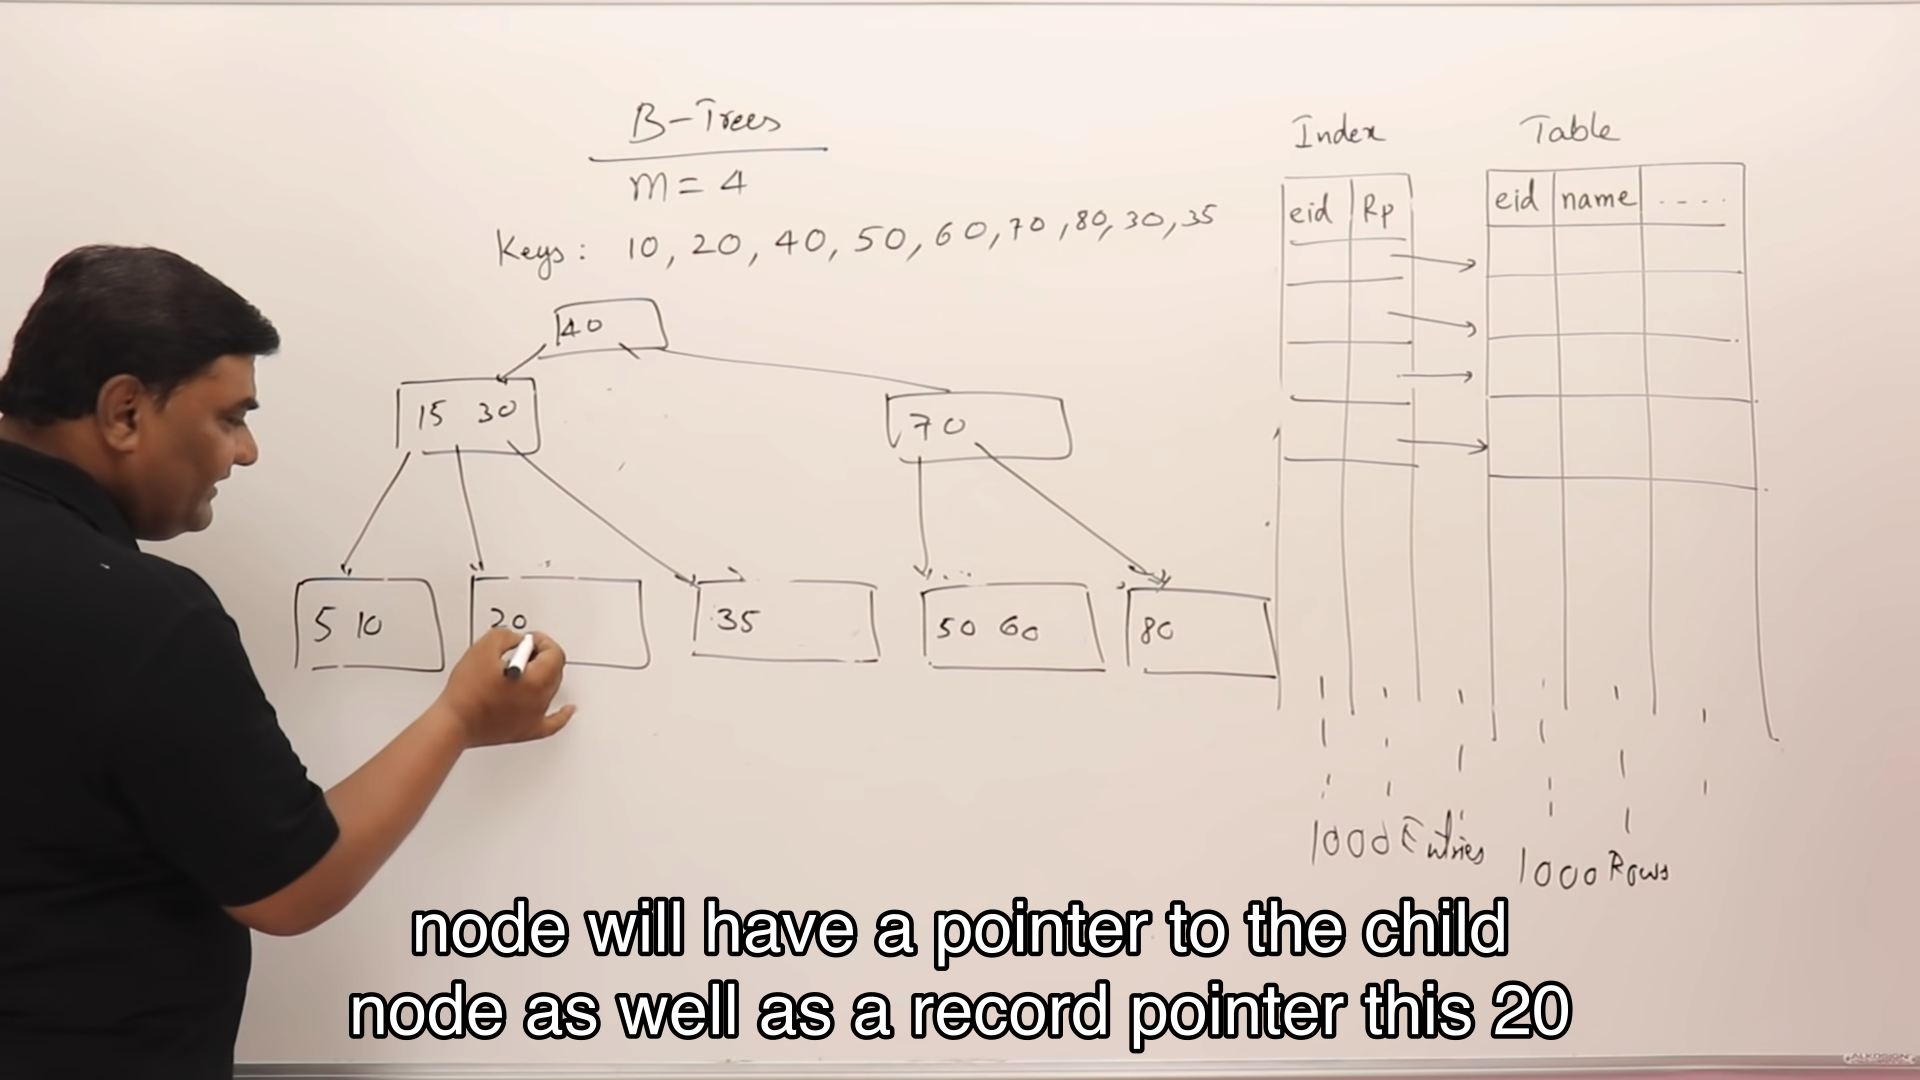 B-Trees
m = 4
Keys: 10, 20, 40, 50, 60, 70, 80, 30, 35
40
15 30
70
5 10
20
35
50 60
80
Index
eid Rp
1000 Entries
Table
eid name ....
1000 Rows
node will have a pointer to the child
node as well as a record pointer this 20